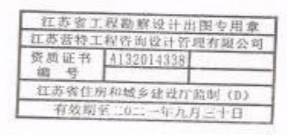 江苏省工程勘察设计出图专用章
江苏营特工程咨询设计管理有限公司
资质证书 A132014338
编号
江苏省住房和城乡建设厅监制（D）
有效期至二〇二一年九月三十日